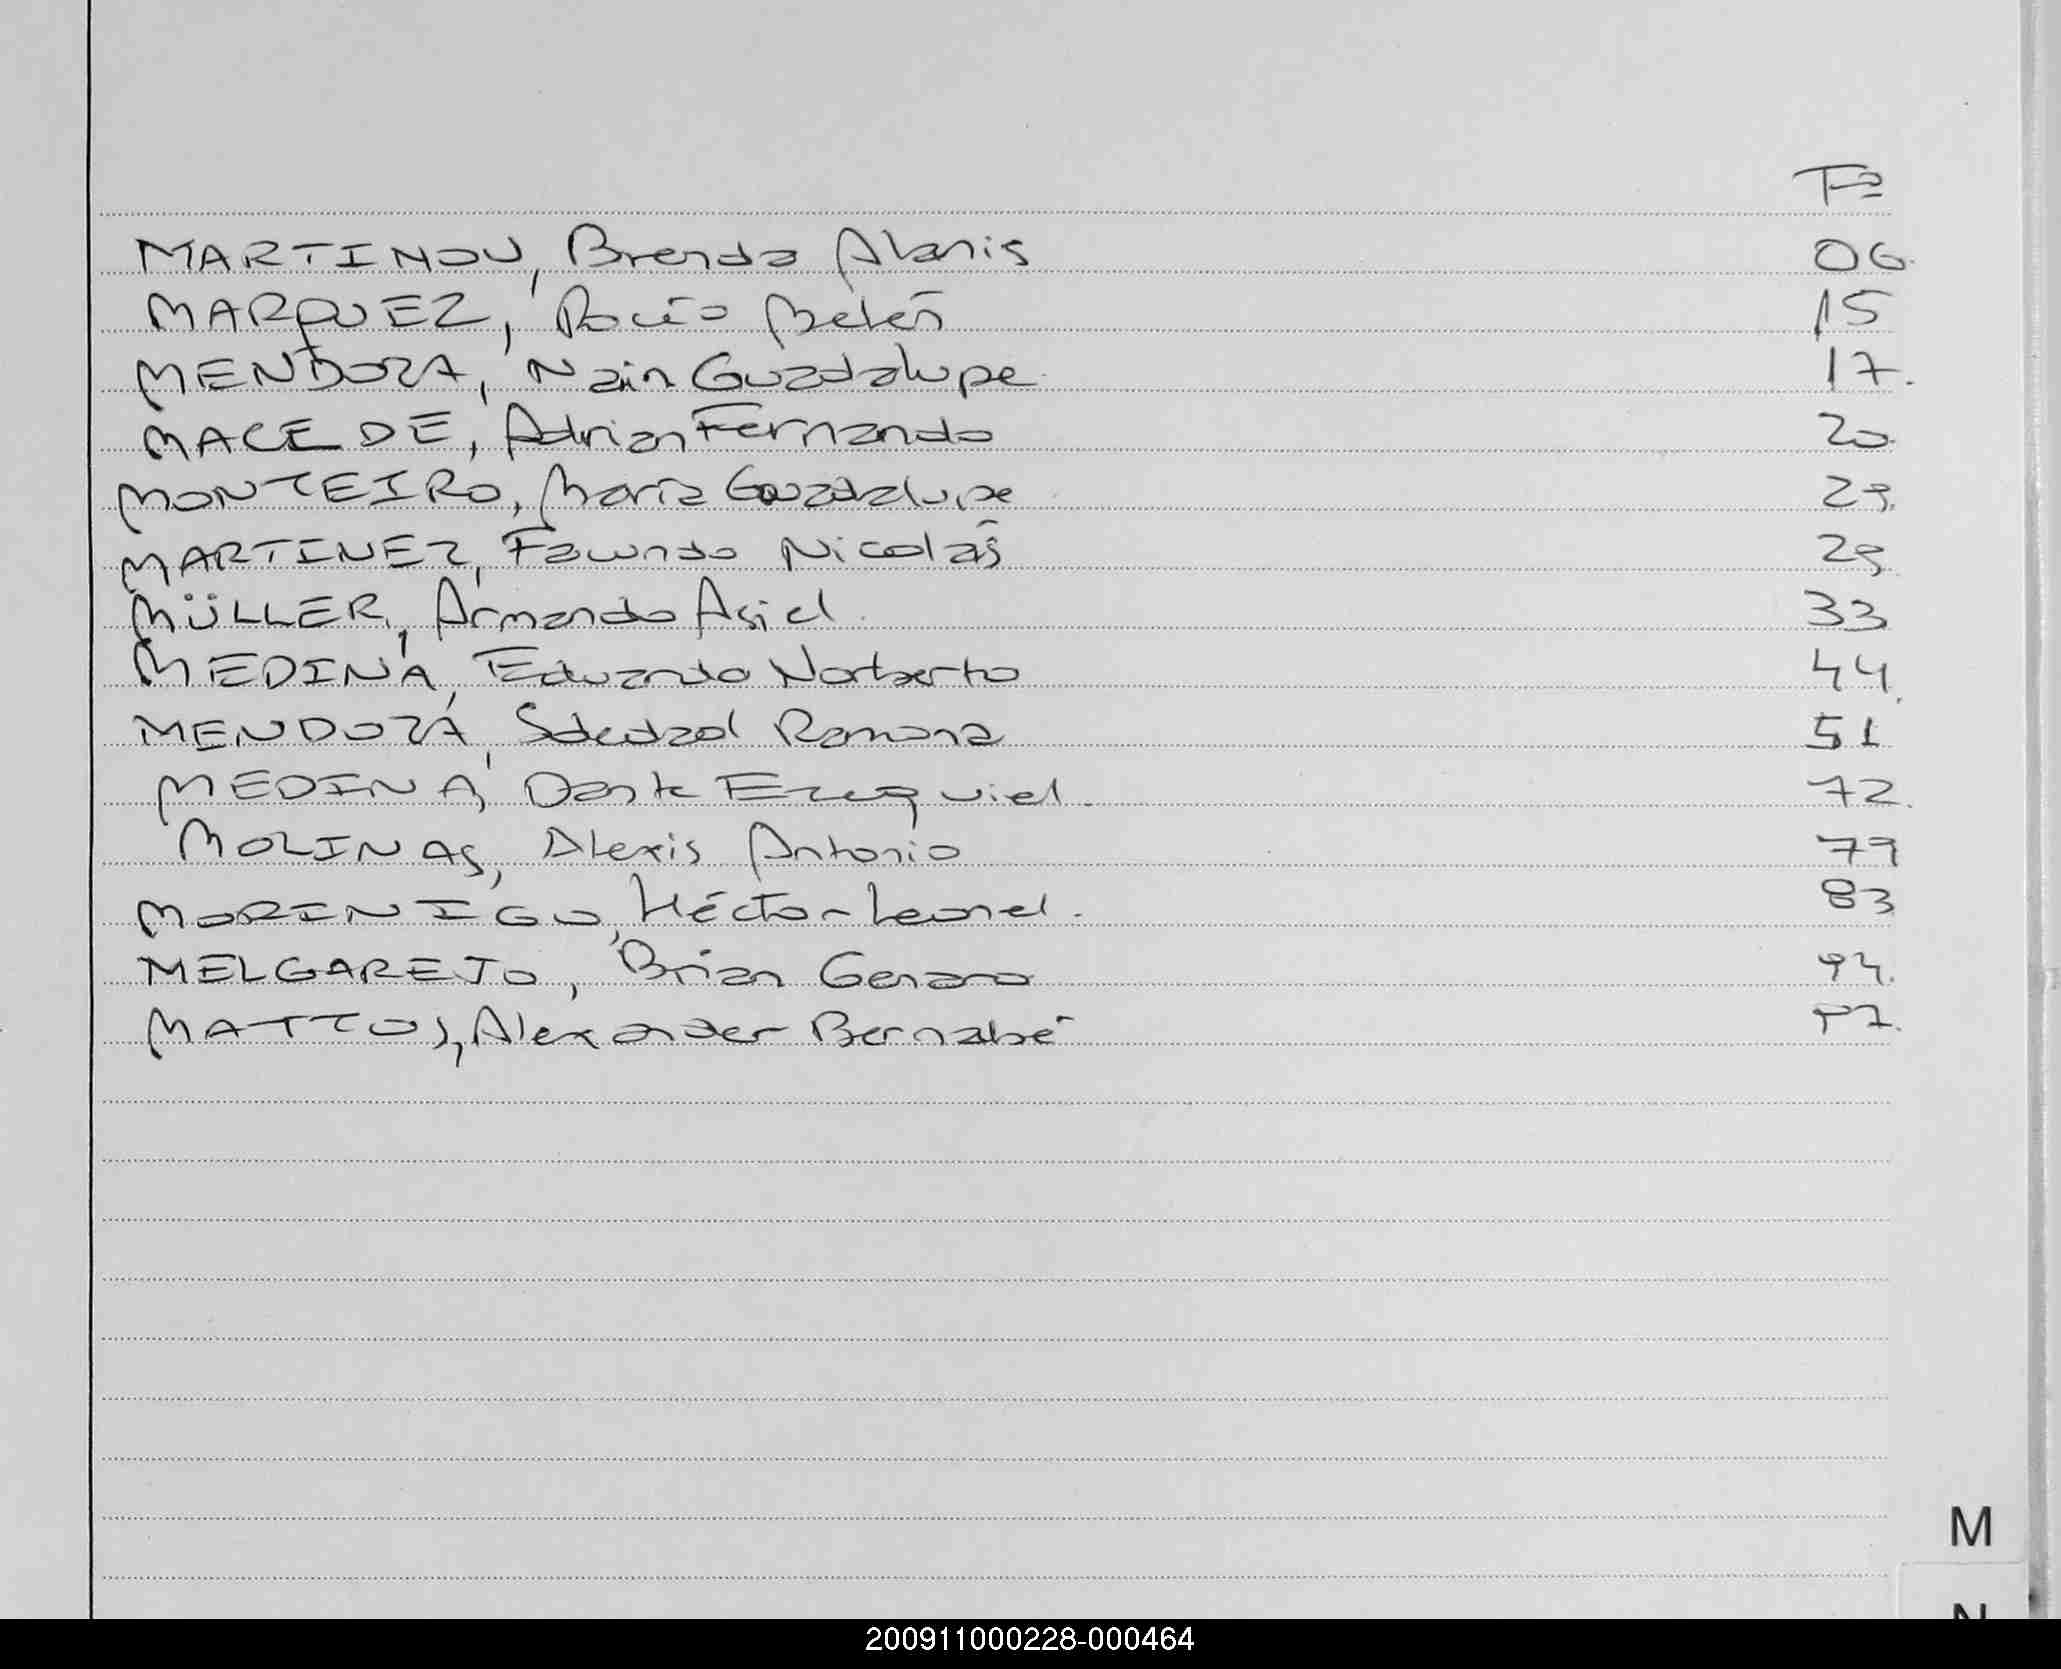 Fº
MARTINOU, Brenda Alanis 06.
MARQUEZ, Rocío Belén 15
MENDOZA, Nain Guadalupe 17.
MACEDE, Adrian Fernando 20.
MONTEIRO, María Guadalupe 29.
MARTINEZ, Facundo Nicolás 29
MÜLLER, Armando Asiel 33
MEDINA, Eduardo Norberto 44.
MENDOZA, Soledad Ramona 51
MEDINA, Dante Ezequiel. 72.
MOLINAS, Alexis Antonio 79
MORINIGO, Héctor Leonel. 83
MELGAREJO, Brian Genaro 94.
MATTOS, Alexander Bernabé 97.
M
N
200911000228-000464